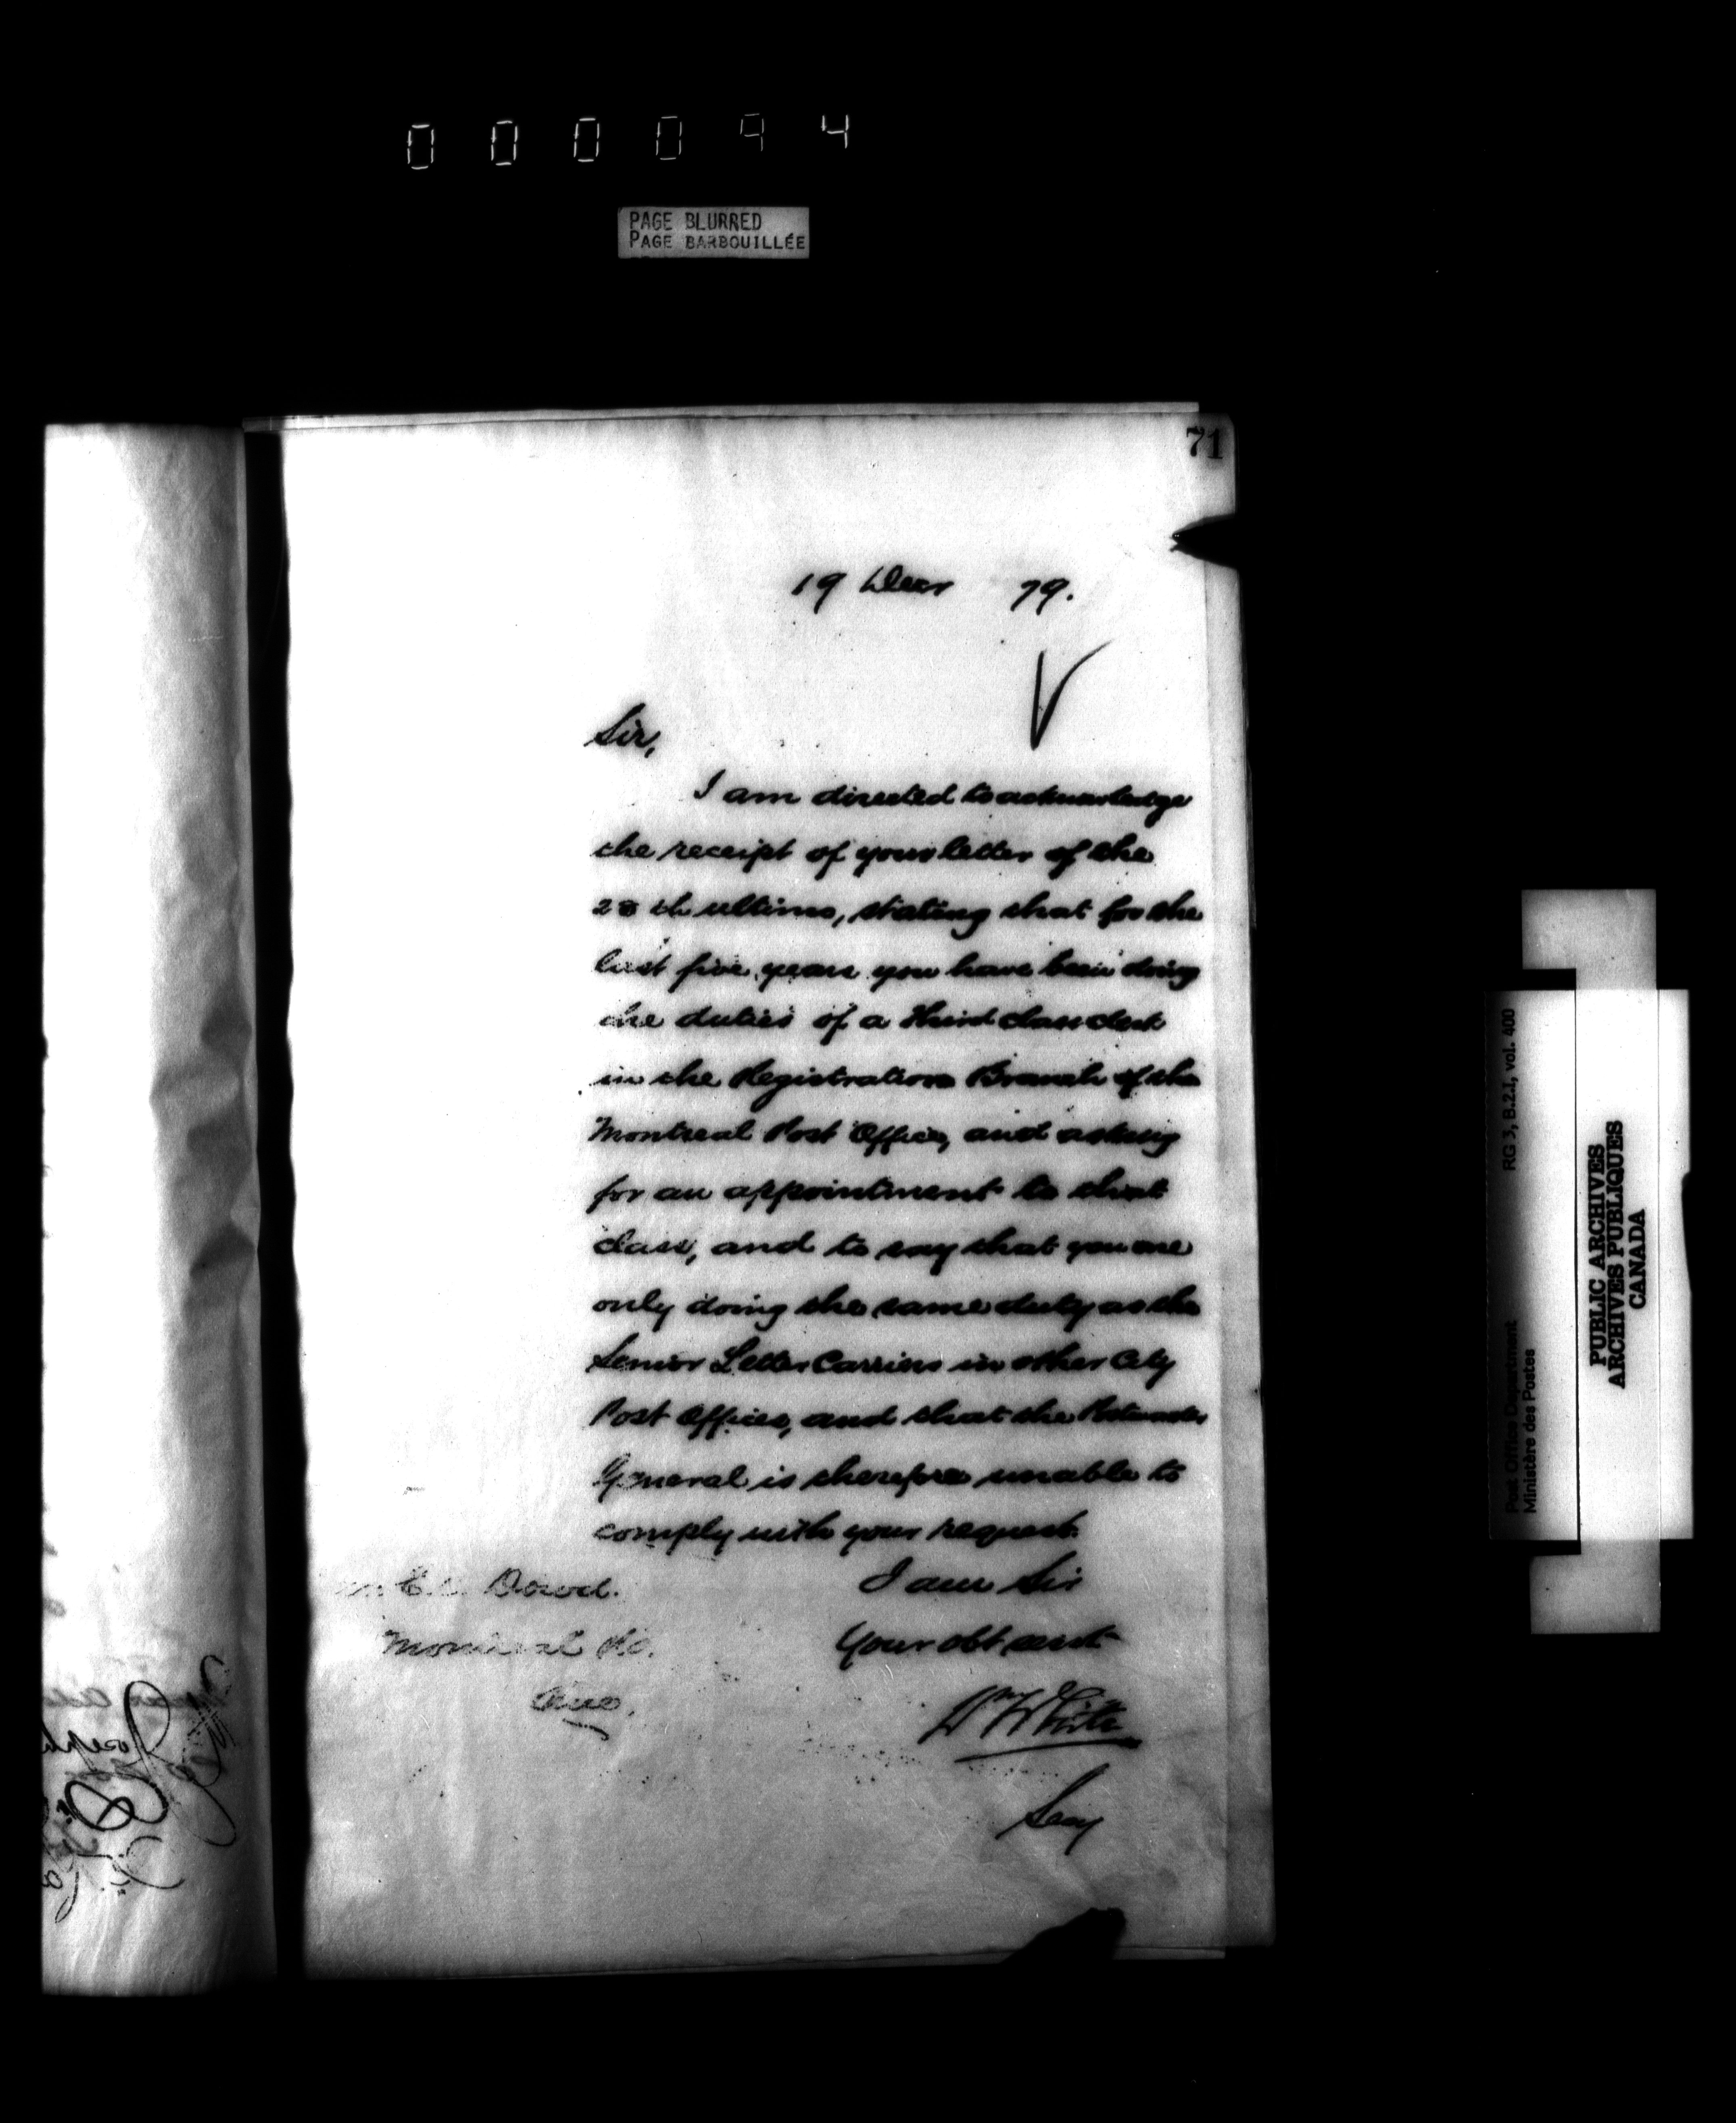 000094
PAGE BLURRED
PAGE BARBOUILLÉE
71
19 Decr 79.
Sir,
I am directed to acknowledge
the receipt of your letter of the
28th ultimo, stating that for the
last five years you have been doing
the duties of a third class clerk
in the Registration Branch of the
Montreal Post Office, and asking
for an appointment to that
class, and to say that you are
only doing the same duty as the
Senior Letter Carriers in other City
Post Offices, and that the Postmaster
General is therefore unable to
comply with your request.
I am Sir
Dowd.
Your obt servt
Montreal
Wm White
Secy
RG 3, B.2.1, vol. 400
Post Office Department
Ministère des Postes
PUBLIC ARCHIVES
ARCHIVES PUBLIQUES
CANADA